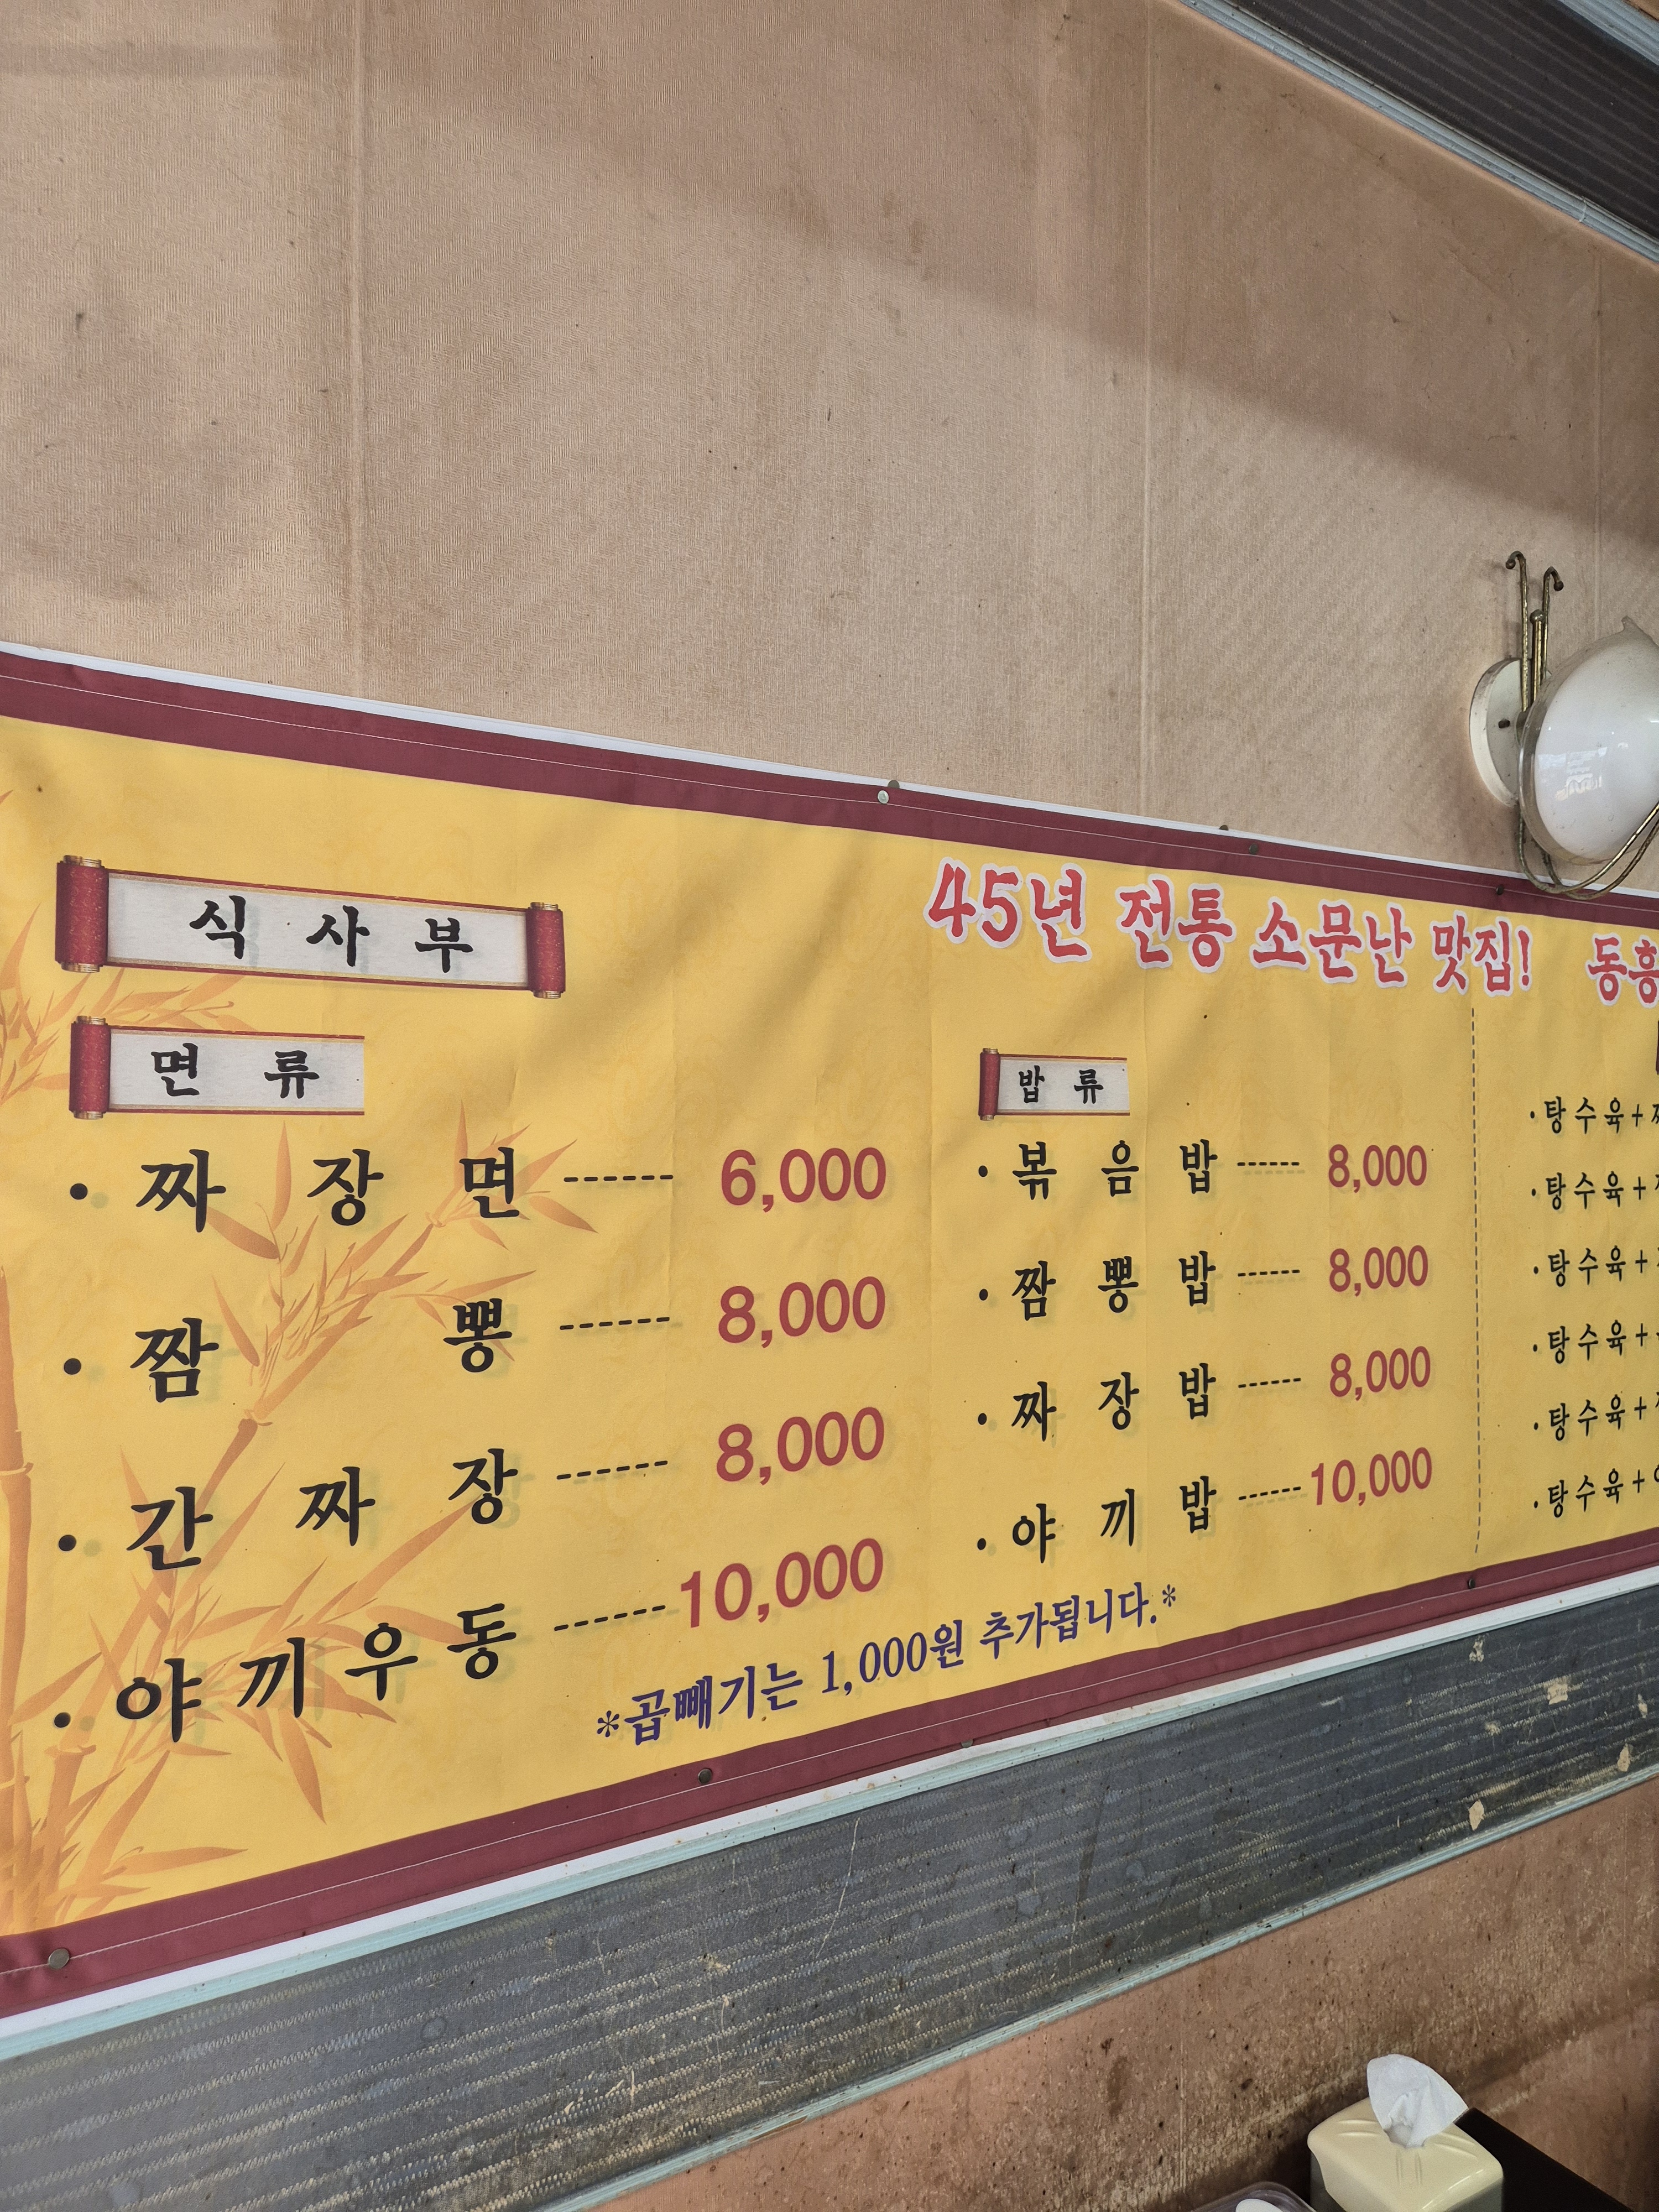 식사부
45년 전통 소문난 맛집! 동흥
면류
짜장면 ------ 6,000
짬뽕 ------ 8,000
간짜장 ------ 8,000
야끼우동 ------ 10,000
밥류
볶음밥 ------ 8,000
짬뽕밥 ------ 8,000
짜장밥 ------ 8,000
야끼밥 ------ 10,000
*곱빼기는 1,000원 추가됩니다.*
탕수육+
탕수육+
탕수육+
탕수육+
탕수육+
탕수육+